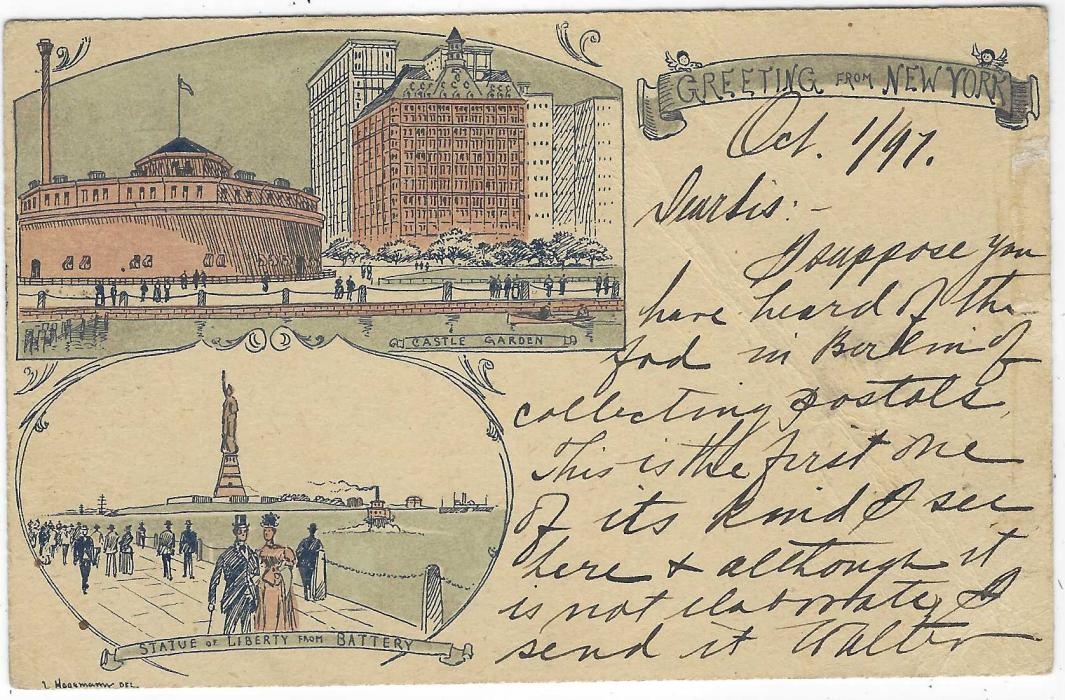 GREETING FROM NEW YORK
Oct. 1/97.
Dear Sis:-
I suppose you
have heard of the
fad in Berlin of
collecting postals.
This is the first one
of its kind I see
here & although it
is not elaborate, I
send it Walter
CASTLE GARDEN
STATUE OF LIBERTY FROM BATTERY
L Hagemann DEL.